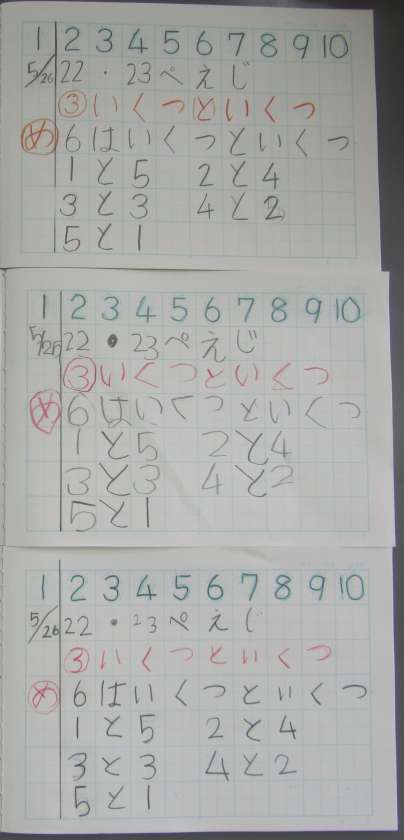 1 2 3 4 5 6 7 8 9 10
5/26 22・23ぺえじ
③いくつといくつ
め 6はいくつといくつ
1と5 2と4
3と3 4と2
5と1
1 2 3 4 5 6 7 8 9 10
5/26 22・23ぺえじ
③いくつといくつ
め 6はいくつといくつ
1と5 2と4
3と3 4と2
5と1
1 2 3 4 5 6 7 8 9 10
5/26 22・23ぺえじ
③いくつといくつ
め 6はいくつといくつ
1と5 2と4
3と3 4と2
5と1